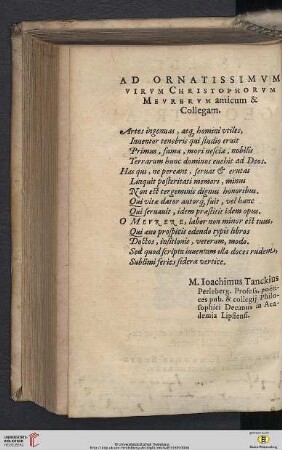 AD ORNATISSIMVM
VIRVM CHRISTOPHORVM
MEVRERVM amicum &
Collegam.
Artes ingenuas, atq́; homini vtiles,
Inuentor tenebris qui studio eruit
Primus, fama, mori nescia, nobilis
Terrarum hunc dominos euehit ad Deos.
Has qui, ne pereant, seruat & erutas
Linquit posteritati memori, minus
Non est tergeminis dignus honoribus.
Qui vitæ dator autorq́; fuit, vel hanc
Qui seruauit, idem præstitit idem opus.
O MEVRERE, labor non minor est tuus,
Qui æuo prospicis edendo typis libros
Doctos, institoris, veterum, modo.
Sed quod scripta inuentum illa doces rudem,
Sublimi feries sidera vertice.
M. Ioachimus Tanckius
Perleberg. Profess. poëti-
ces pub. & collegij Philo-
sophici Decanus in Aca-
demia Lipsiensi.
UNIVERSITÄTS-
BIBLIOTHEK
HEIDELBERG
Universitätsbibliothek Heidelberg
gefördert durch
Baden-Württemberg